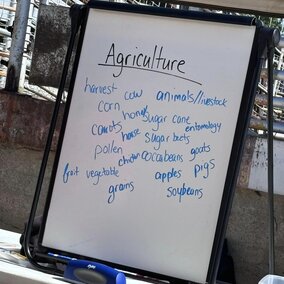 Agriculture
harvest cow animals/livestock
corn honey sugar cane
carrots horse entomology
sugar beets
pollen chicken cocoabeans goats
fruit vegetable apples pigs
grains soybeans